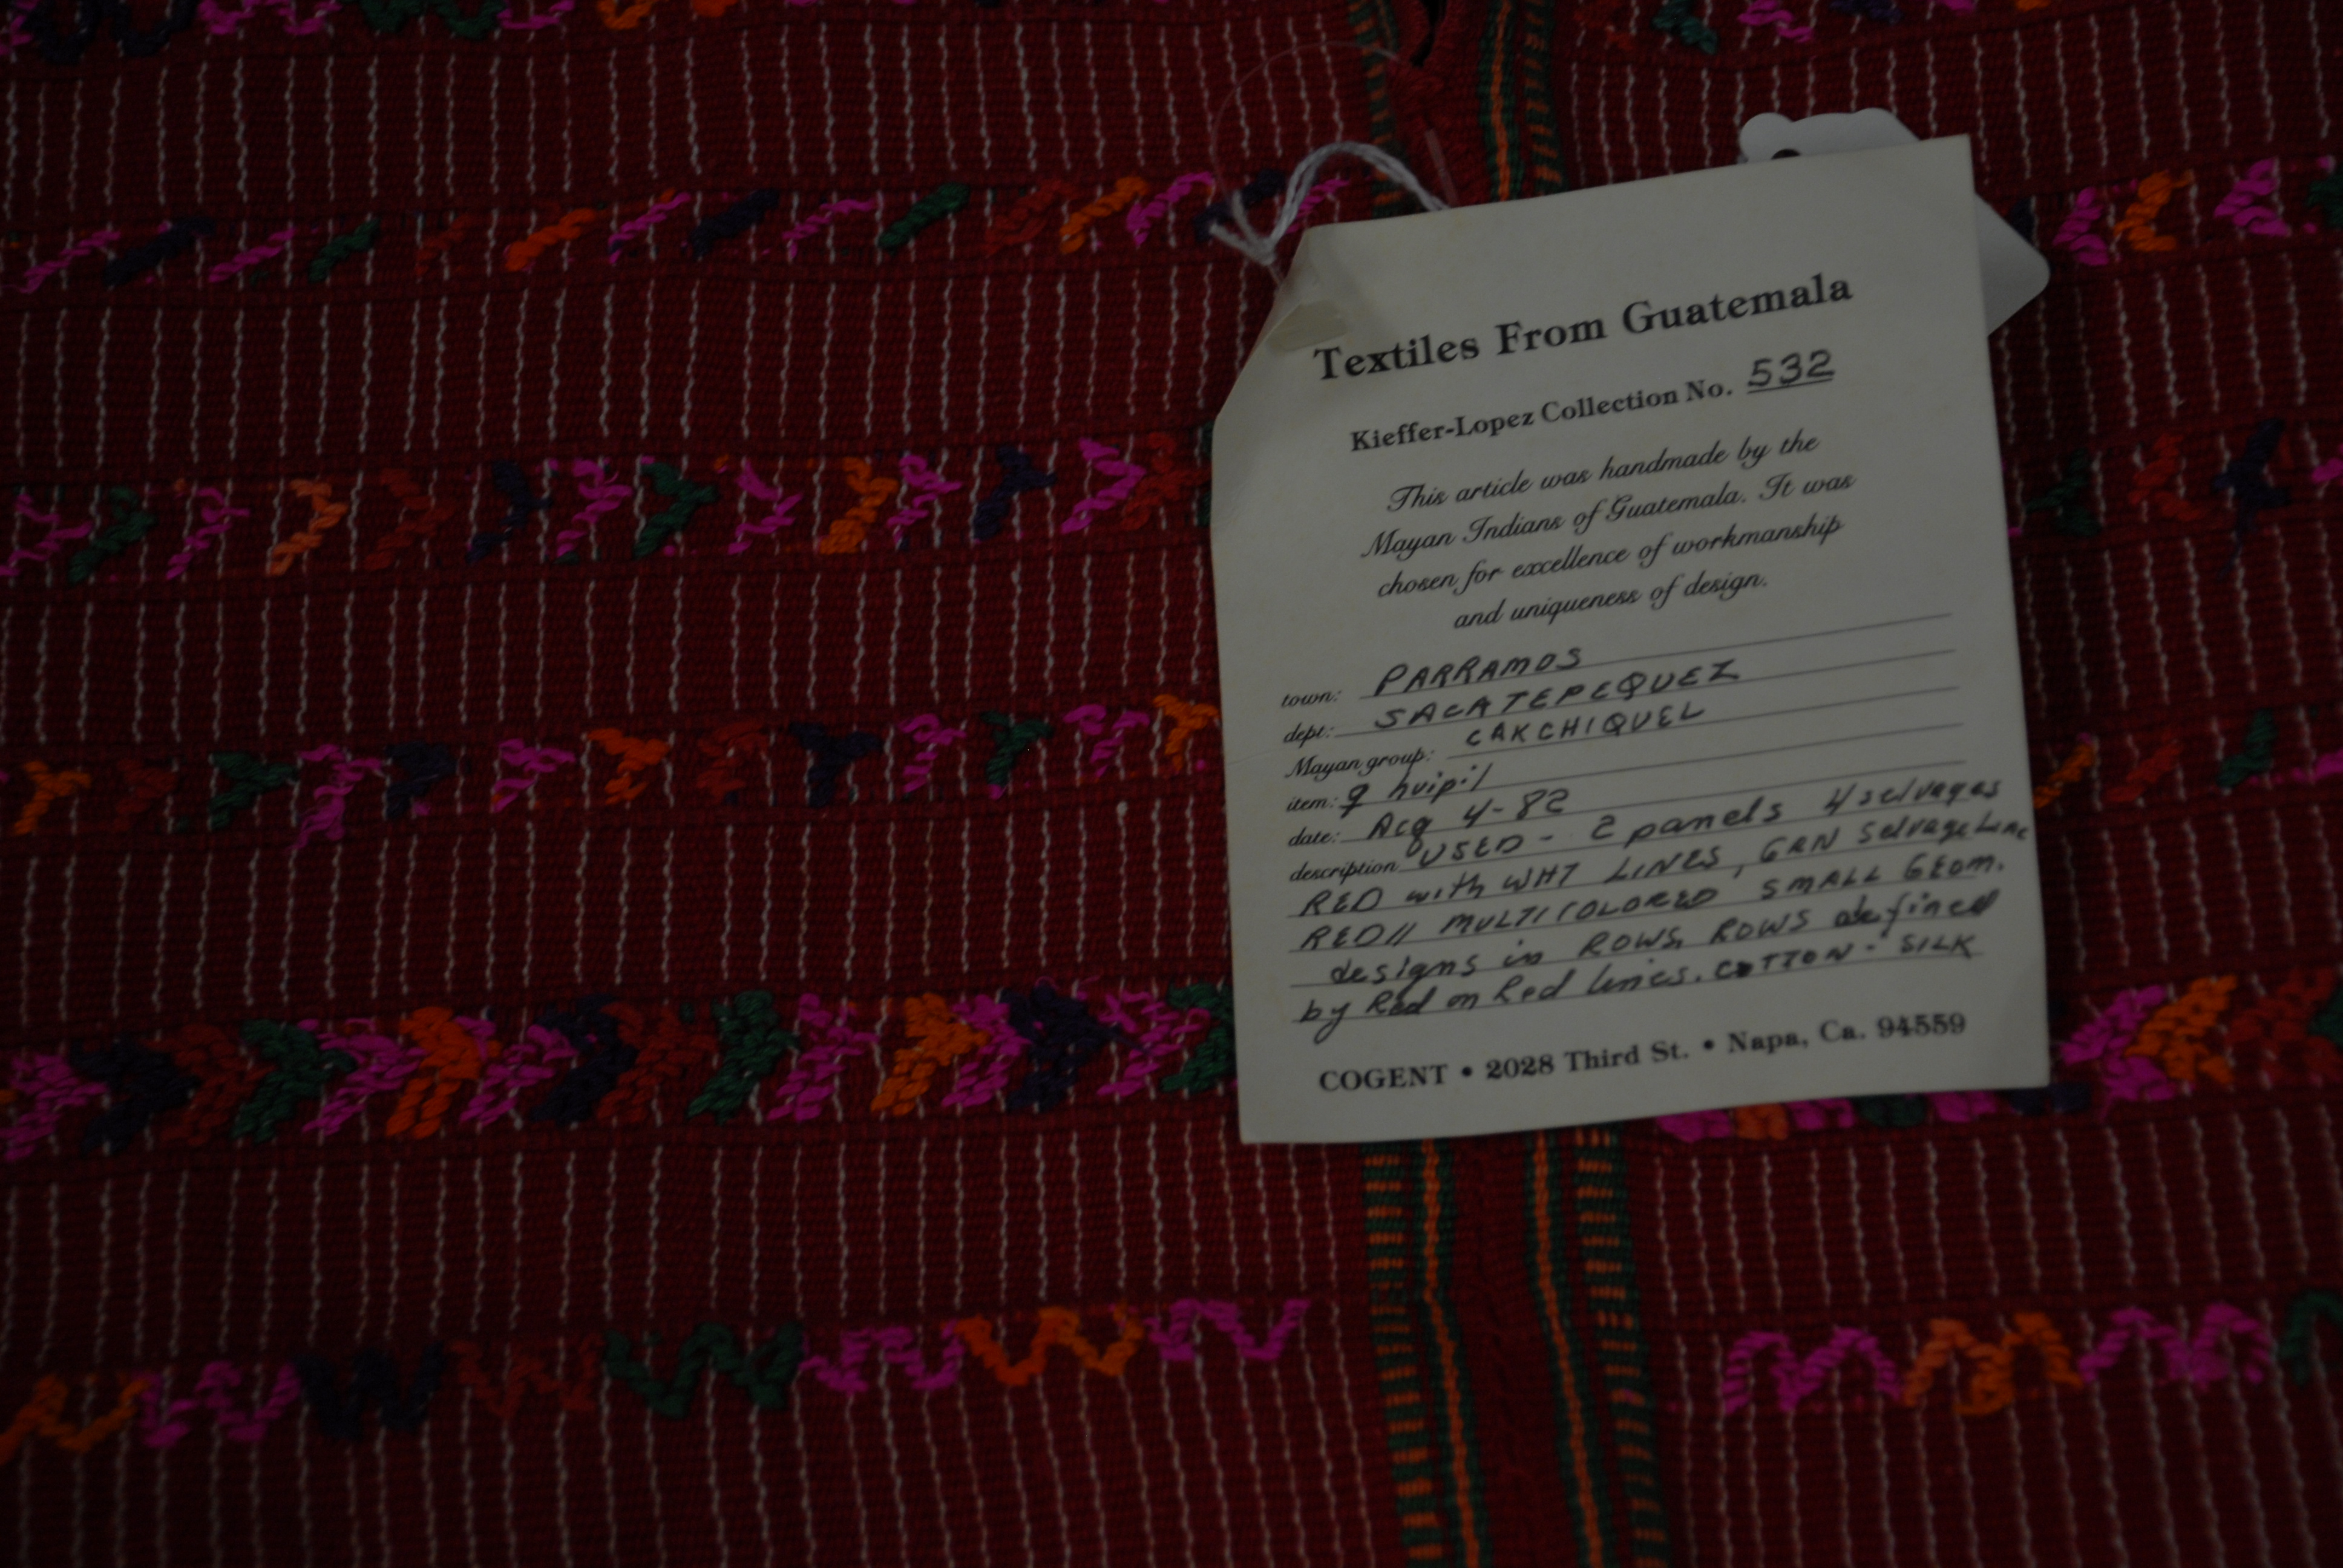 Textiles From Guatemala
Kieffer-Lopez Collection No. 532
This article was handmade by the
Mayan Indians of Guatemala. It was
chosen for excellence of workmanship
and uniqueness of design.
town: PARRAMOS
dept: SACATEPEQUEZ
Mayan group: CAKCHIQUEL
item: huipil
date: Acq 4-82
description USED - 2 panels 4 selvages
RED with WHT LINES, GRN Selvage Line
RED // MULTICOLORED SMALL GEOM.
designs in ROWS, ROWS defined
by Red on Red lines. COTTON - SILK
COGENT • 2028 Third St. • Napa, Ca. 94559